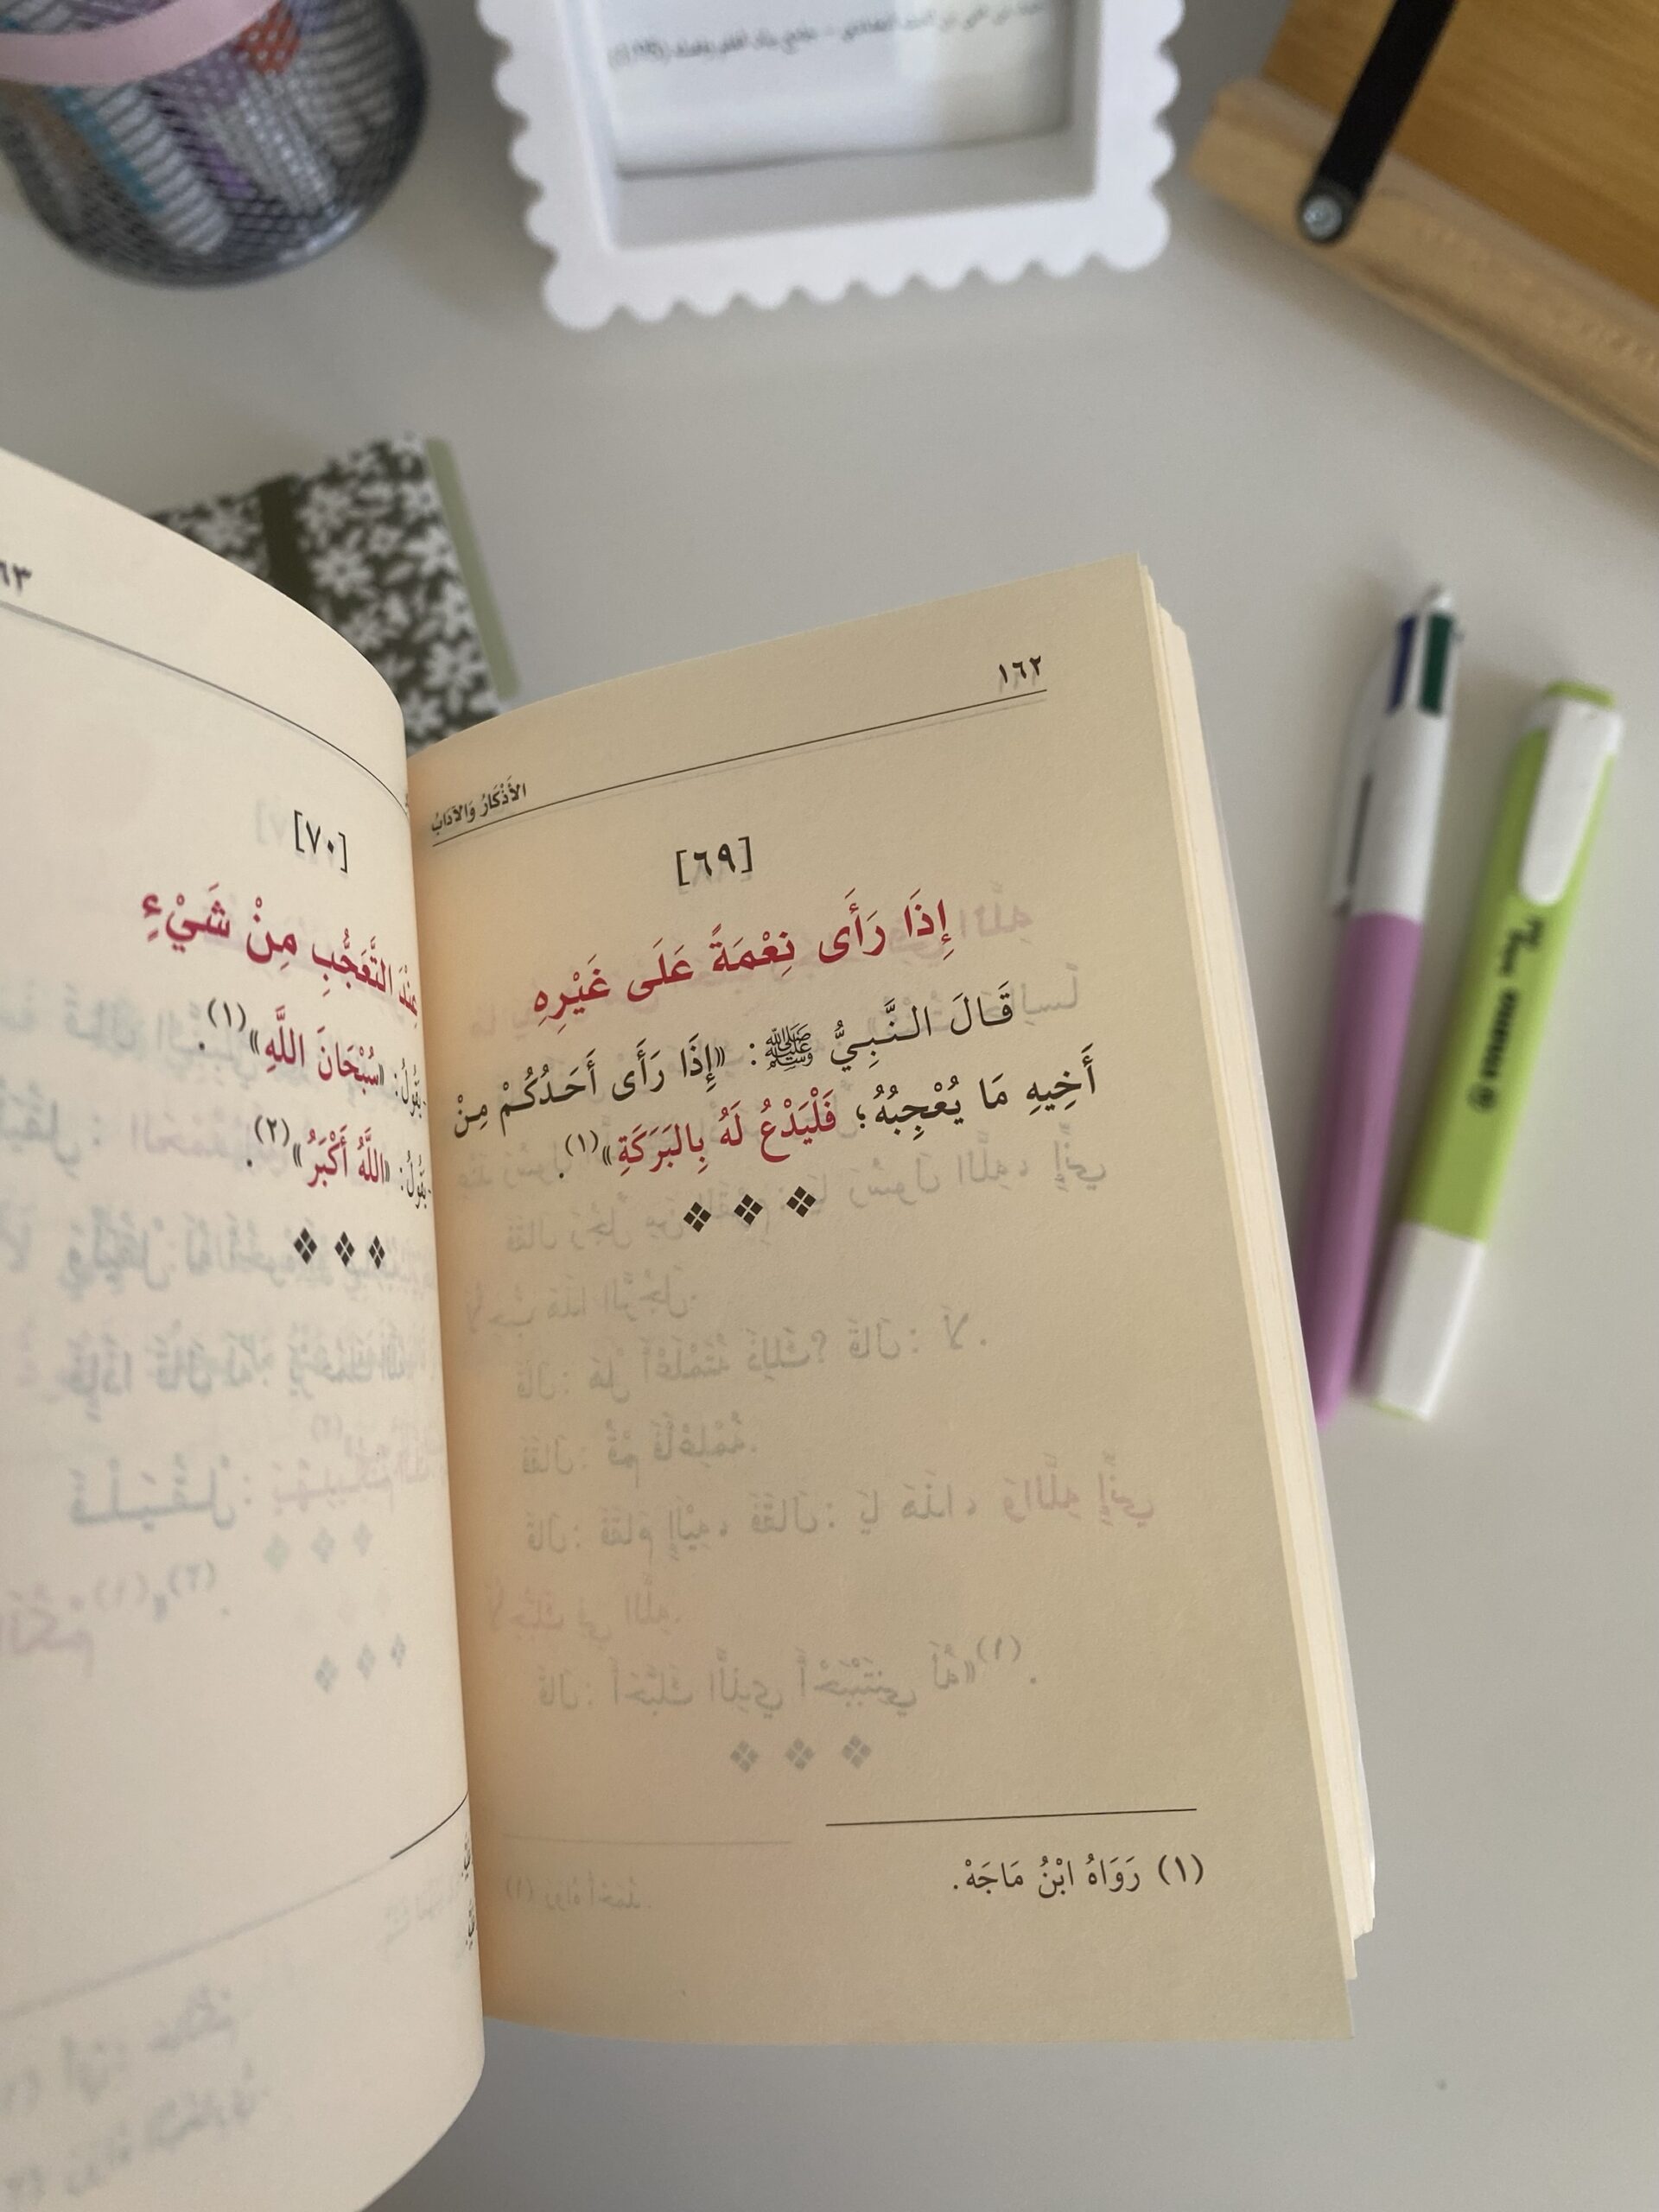 ١٦٢
الأَذْكَارُ وَالآدَابُ
[٦٩]
إِذَا رَأَى نِعْمَةً عَلَى غَيْرِهِ
قَالَ النَّبِيُّ ﷺ: «إِذَا رَأَى أَحَدُكُمْ مِنْ
أَخِيهِ مَا يُعْجِبُهُ؛ فَلْيَدْعُ لَهُ بِالبَرَكَةِ»(١).
(١) رَوَاهُ ابْنُ مَاجَهْ.
[٧٠]
عِنْدَ التَّعَجُّبِ مِنْ شَيْءٍ
- يَقُولُ: «سُبْحَانَ اللَّهِ»(١).
- يَقُولُ: «اللَّهُ أَكْبَرُ»(٢).